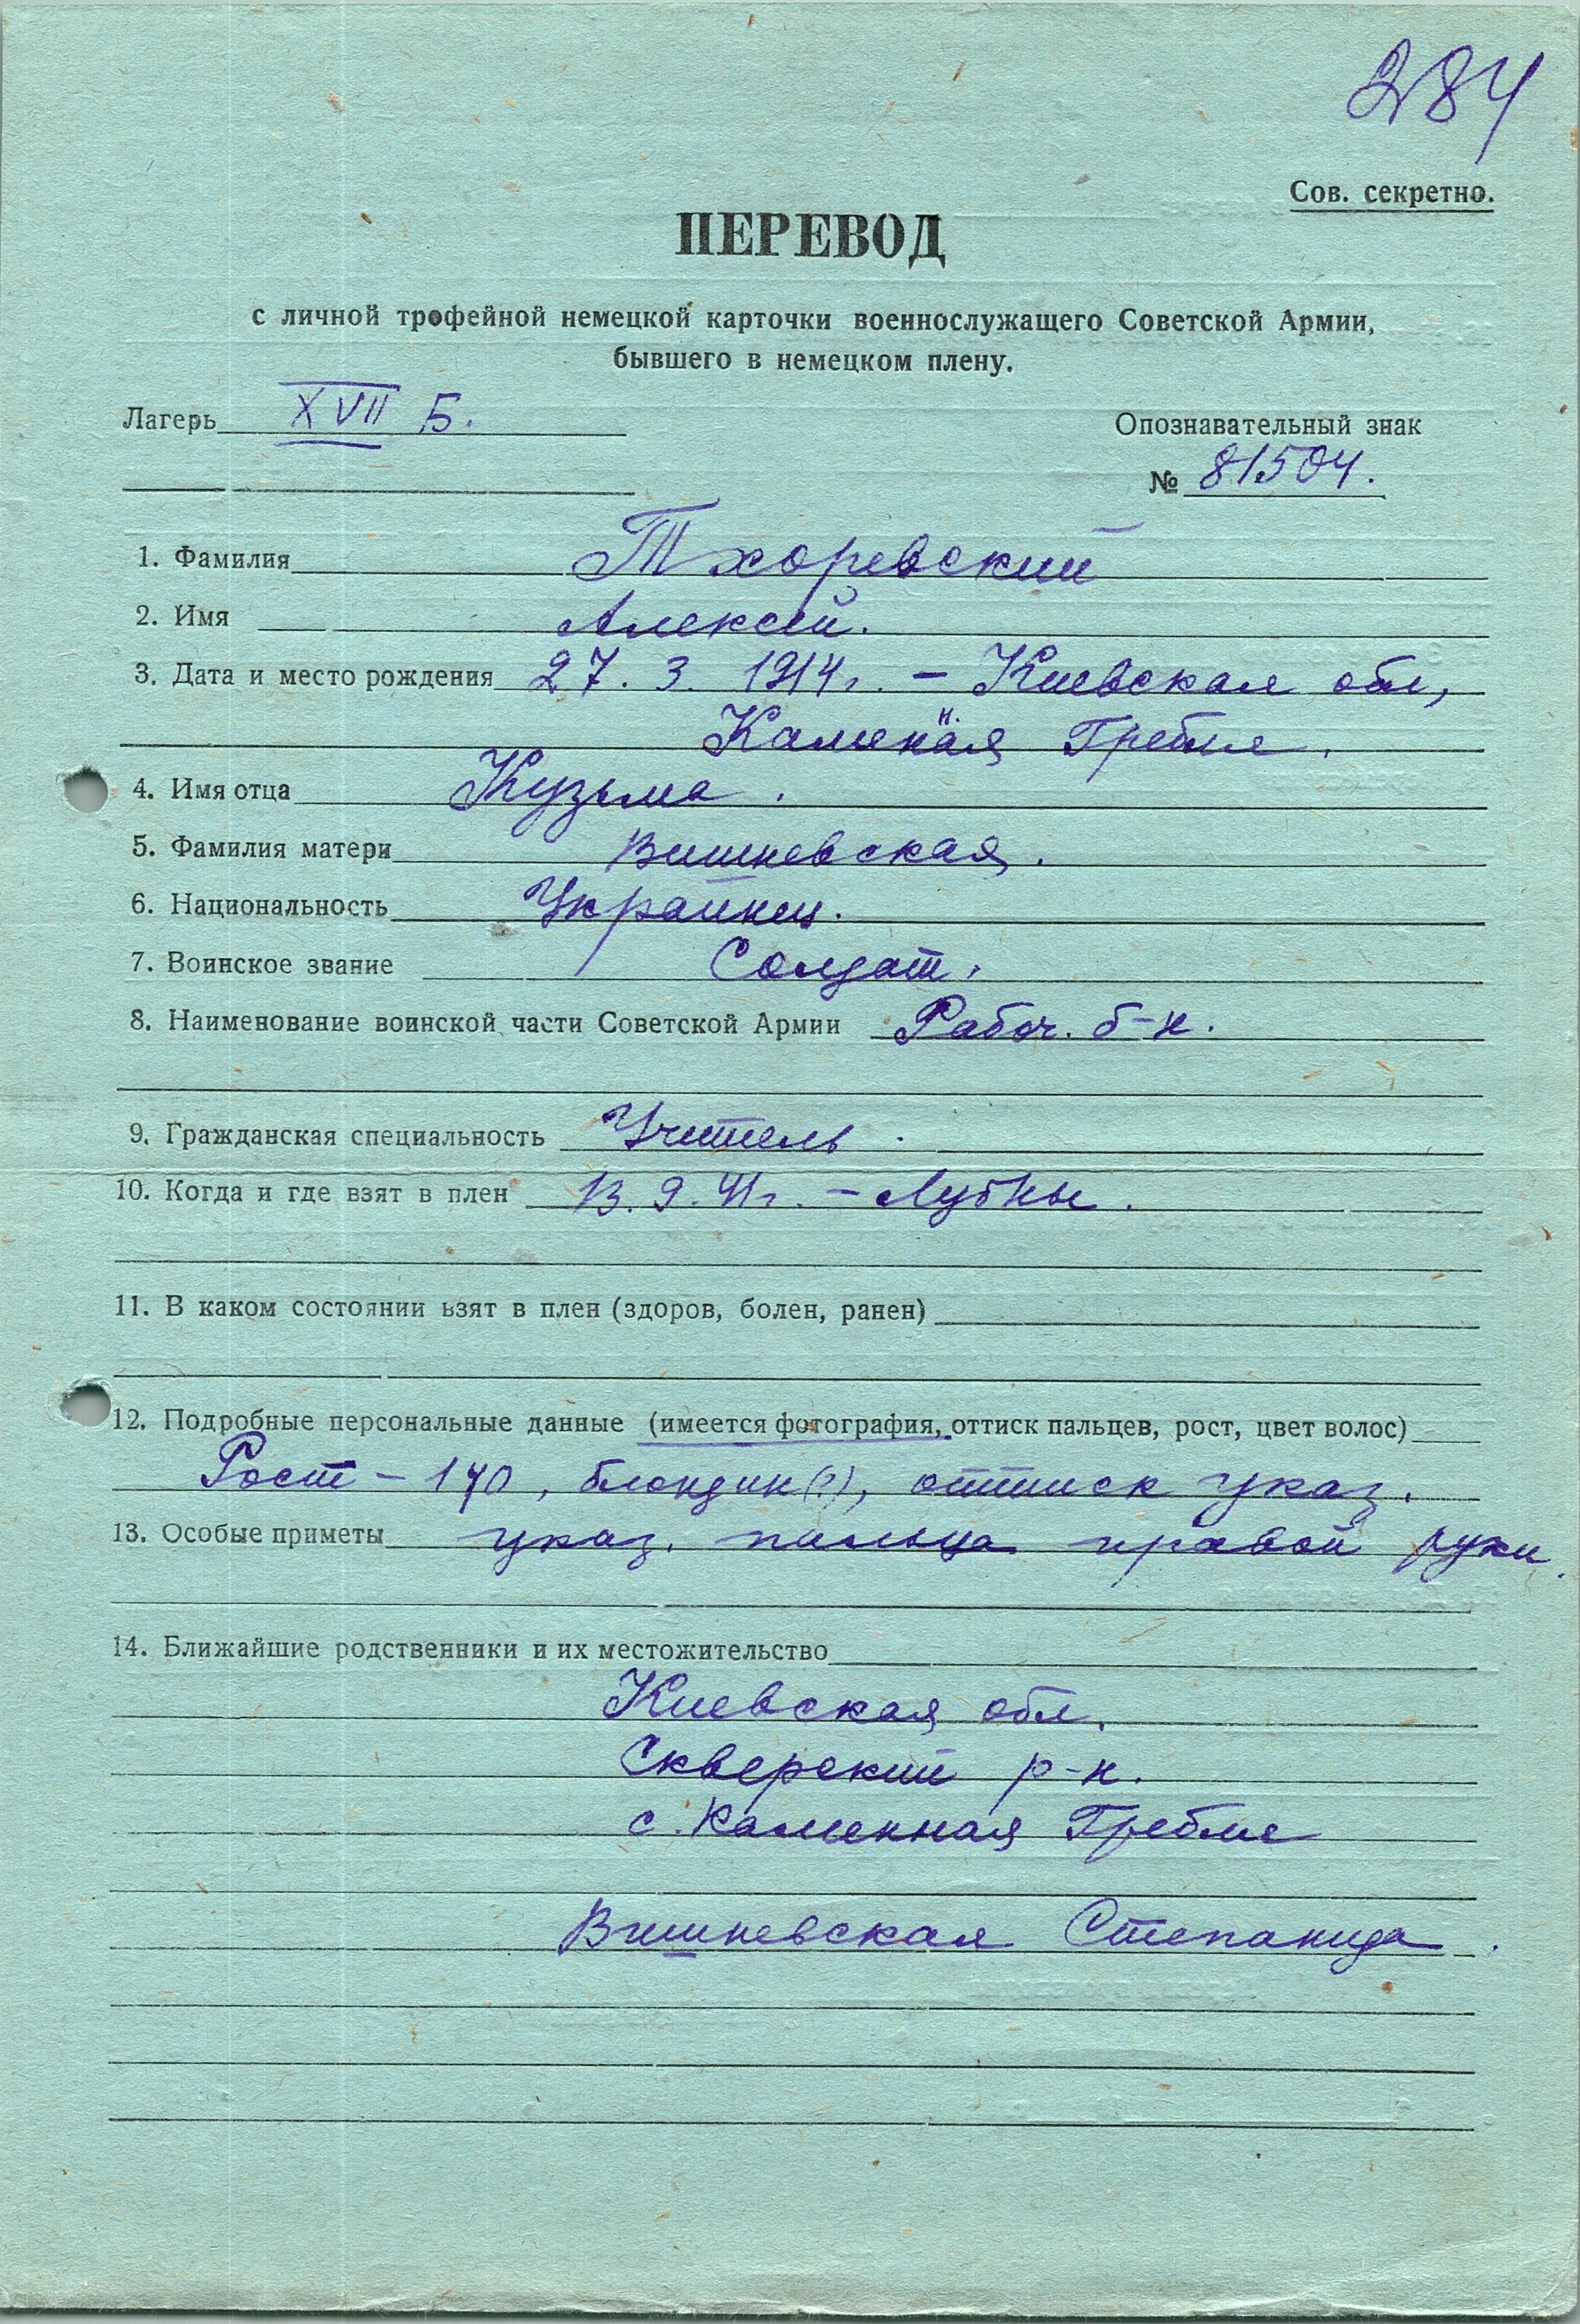 284
Сов. секретно.
ПЕРЕВОД
с личной трофейной немецкой карточки военнослужащего Советской Армии,
бывшего в немецком плену.
Лагерь XVII Б.
Опознавательный знак
№ 81504.
1. Фамилия Тхоревский
2. Имя Алексей.
3. Дата и место рождения 27. 3. 1914г. – Киевская обл,
Каменная Гребля.
4. Имя отца Кузьма.
5. Фамилия матери Вишневская.
6. Национальность Украинец.
7. Воинское звание Солдат.
8. Наименование воинской части Советской Армии Рабоч. б-н.
9. Гражданская специальность Учитель.
10. Когда и где взят в плен 13. 9. 41г. – Лубны.
11. В каком состоянии взят в плен (здоров, болен, ранен)
12. Подробные персональные данные (имеется фотография, оттиск пальцев, рост, цвет волос)
Рост – 170, блондин (?), оттиск указ.
13. Особые приметы указ. пальца правой руки.
14. Ближайшие родственники и их местожительство
Киевская обл.
Сквирский р-н.
с. Каменная Гребля
Вишневская Степанида.